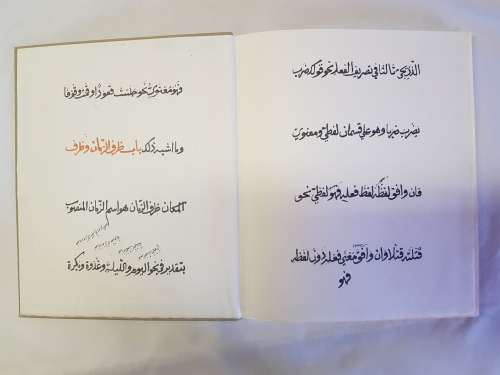 الذي يجئ ثالثا في تصريف الفعل نحو قولك ضرب
يضرب ضربا وهو على قسمان لفظي ومعنوي
فان وافق لفظه لفظ فعله فهو لفظي نحو
قتلته قتلا وان وافق معنى فعله دون لفظه
فهو
فهو معنوي نحو جلست قعودا وقمت وقوفا
وما اشبه ذلك باب ظرف الزمان وظرف
المكان ظرف الزمان هو اسم الزمان المنصوب
بتقدير في نحو اليوم والليلة وغدوة وبكرة